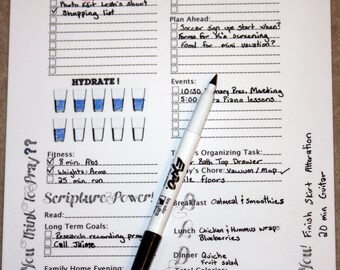 Photo Edit Leah's shoot
Shopping list
HYDRATE!
Fitness:
8 min Abs
Weights: Arms
25 min run
Scripture Power!
Read:
Long Term Goals:
Research recording
Call Jaime
Family Home Evening
Plan Ahead:
Soccer sign up start when?
Forms for K's screening
Food for mini vacation?
Events:
10:30 Primary Pres. Meeting
5:00 Piano lessons
Organizing Task:
Bath Top Drawer
Chore: Vacuum/Mop
Floors
Breakfast Oatmeal & Smoothies
Lunch Chicken & Hummus wrap
Blueberries
Dinner Quiche
Fruit salad
EXPO
You Think To Pray??
Finish Shirt Alteration
20 min Guitar